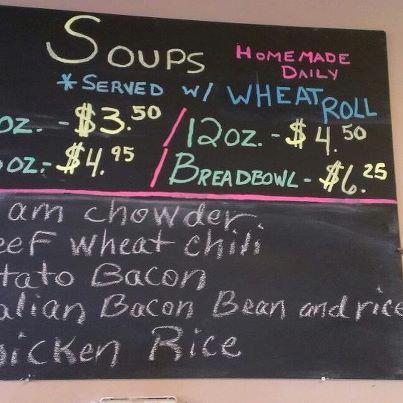 Soups HOMEMADE DAILY
*SERVED W/ WHEAT ROLL
oz. - $3.50 / 12oz. - $4.50
oz. - $4.95 / BREADBOWL - $6.25
am chowder
eef wheat chili
tato Bacon
alian Bacon Bean and rice
hicken Rice